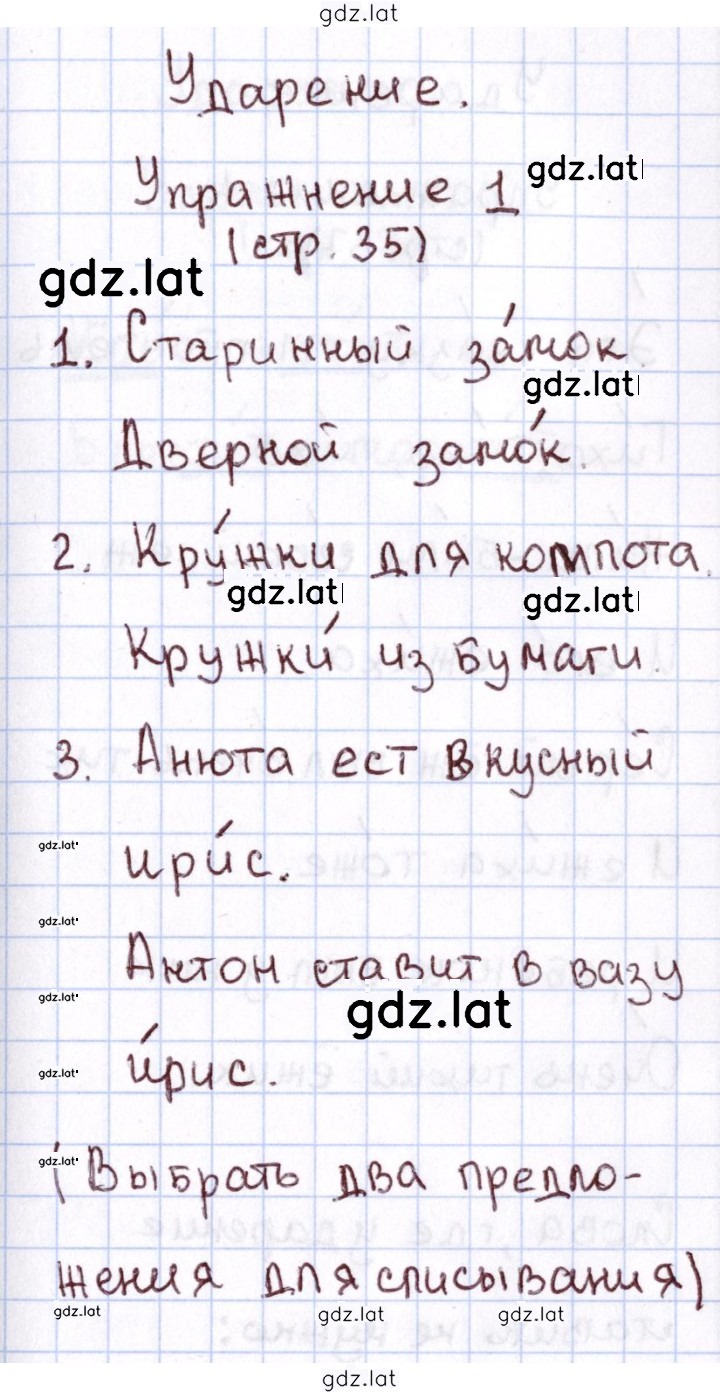 gdz.lat
Ударение.
Упражнение 1
gdz.lat
(стр. 35)
gdz.lat
1. Старинный за́мок
gdz.lat
Дверной замо́к.
2. Кру́жки для компота.
gdz.lat
gdz.lat
Кружки́ из бумаги.
3. Анюта ест вкусный
gdz.lat
ири́с.
gdz.lat
Антон ставит в вазу
gdz.lat
gdz.lat
и́рис.
gdz.lat
gdz.lat
(Выбрать два предло-
жения для списывания)
gdz.lat
gdz.lat
gdz.lat
gdz.lat